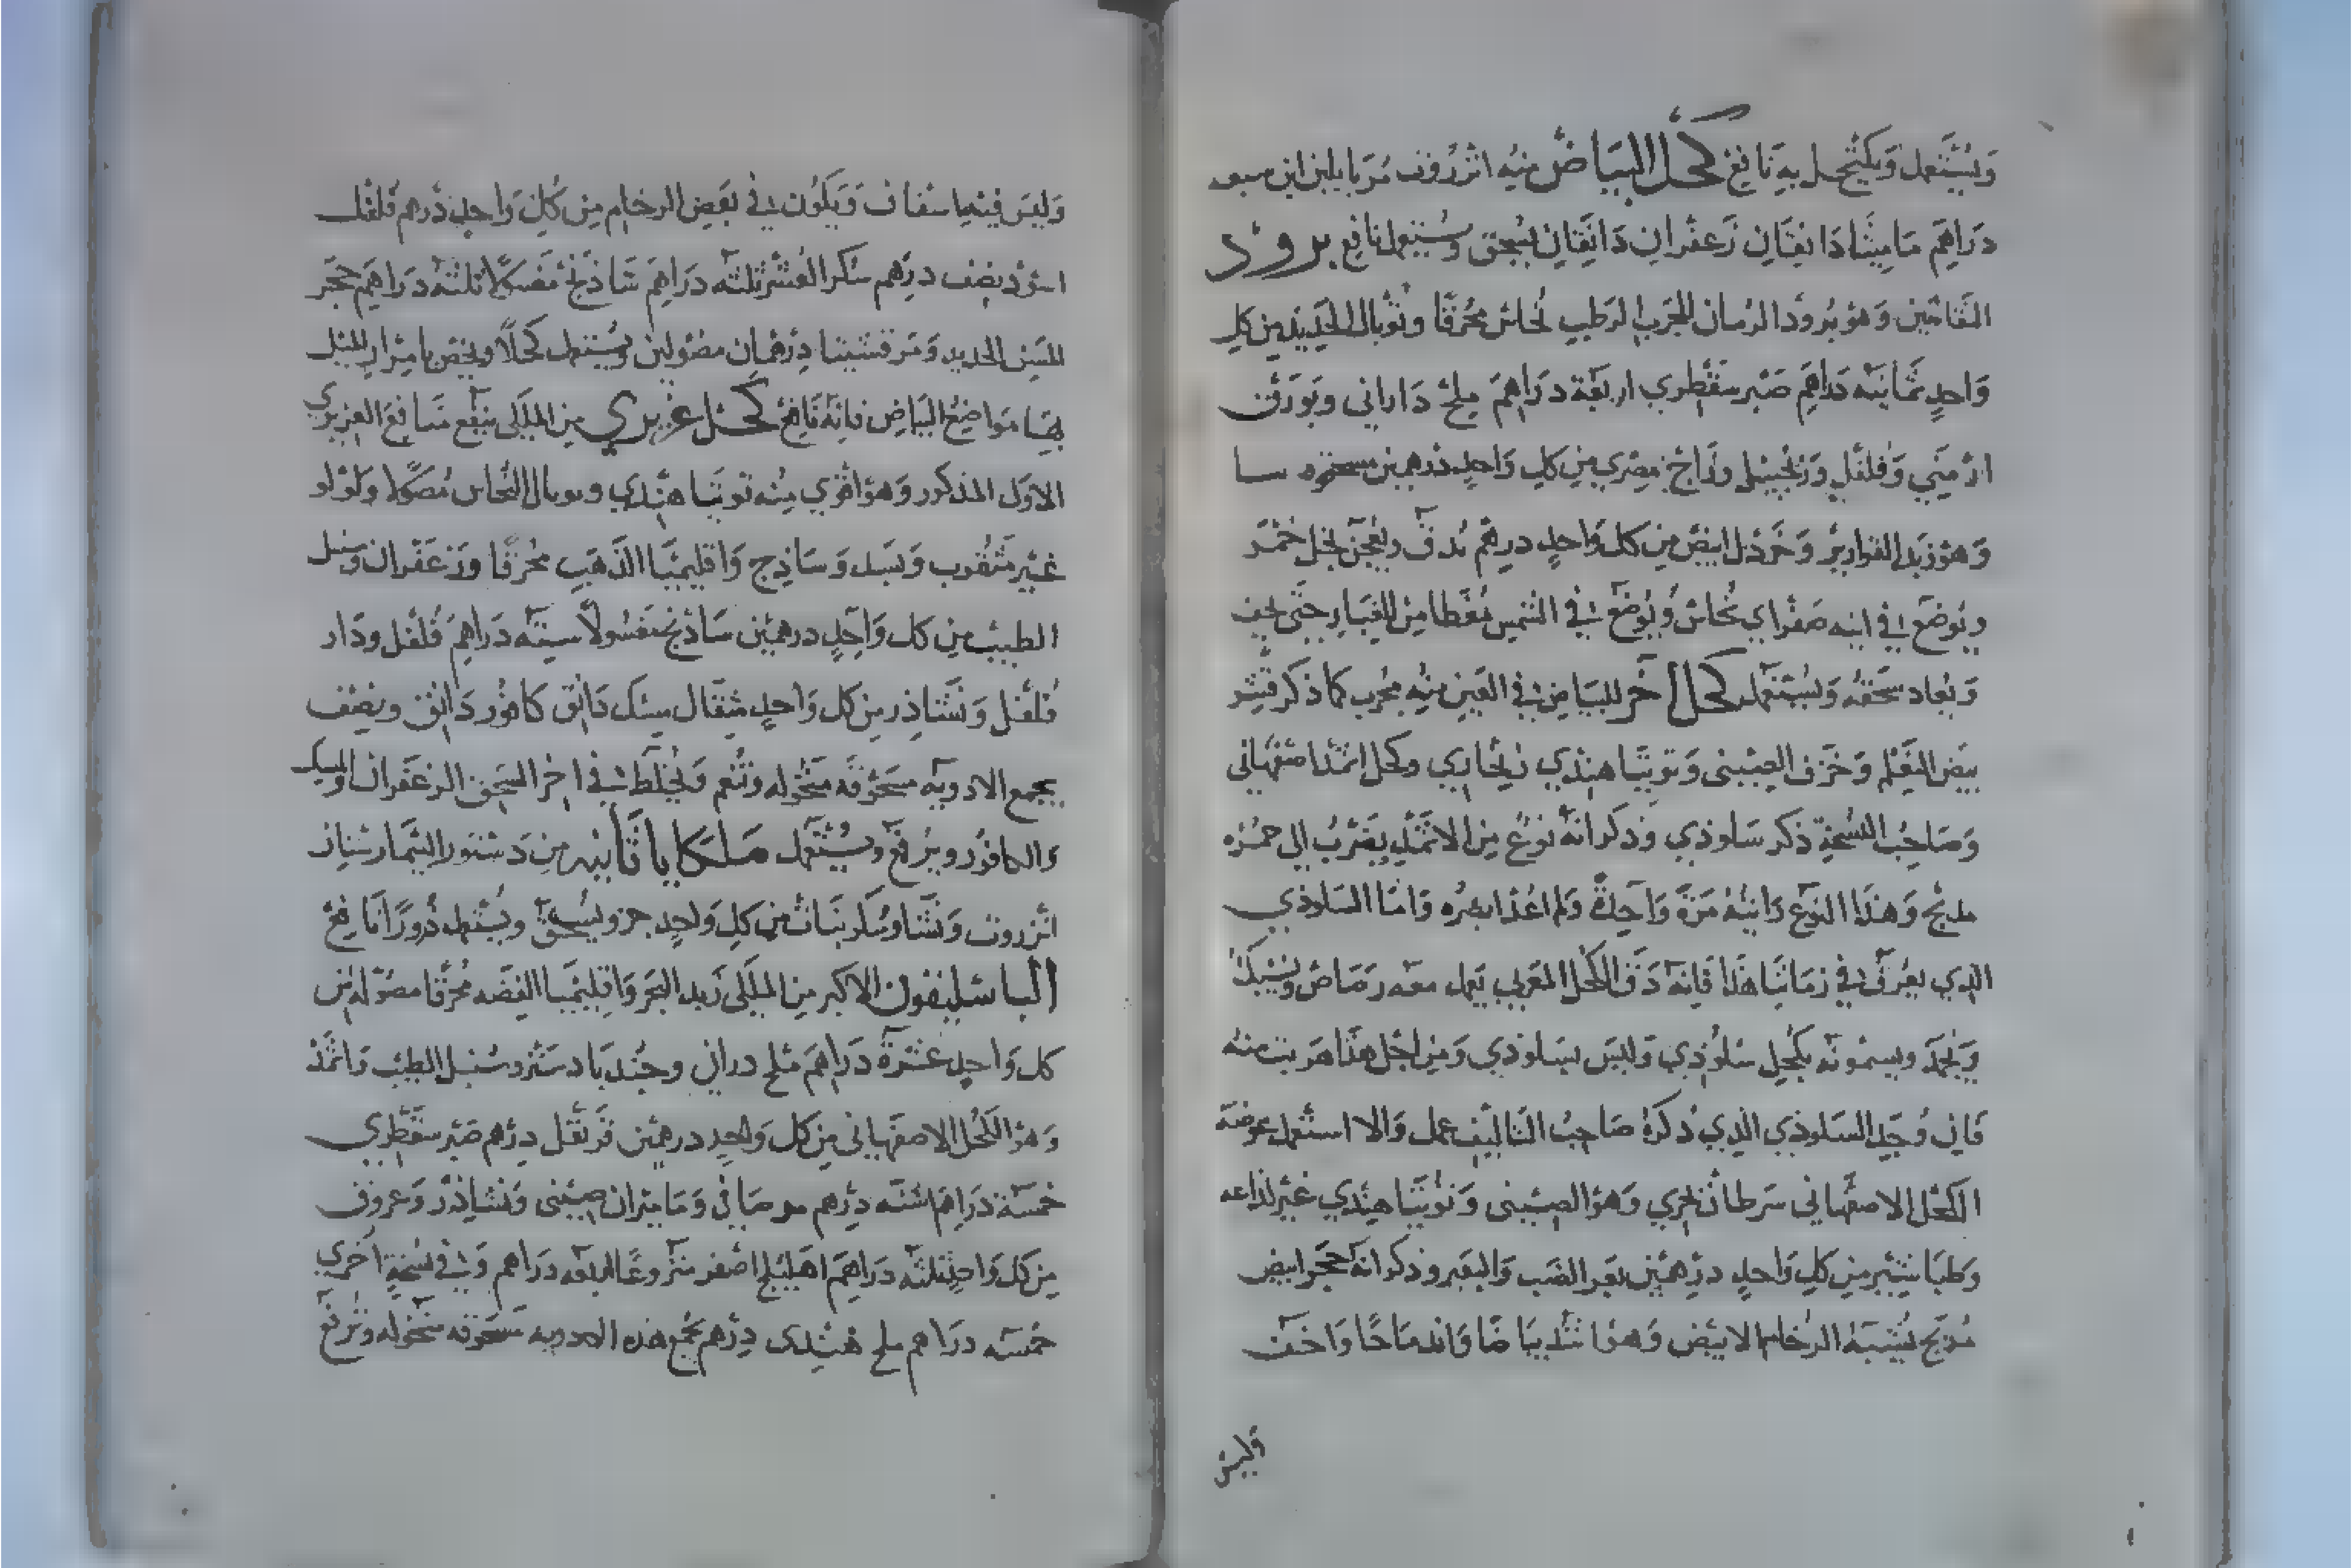 وَيُسْتَعمل وَيكتحِل بِهِ نَافِع كحل البَيَاض مِنهُ انزرُوت مُربا بلبن اتن سبعه
دَرَاهِم مَامِيثَا دَانِقَان زَعفرَان دَانِقَان يُسحق وَيُستَعمل نافع برود
النقاشين وَهوَ بُرودُ الرُمان للجَرب الرَطب نُحاس مُحرَقًا وتُوبَال الحَدِيد مِن كل
وَاحِدٍ ثمَانيَه دَرَاهِم صَبر سقُطري اربَعَة دَرَاهِمَ مِلح دَارانى وبَورَق
ارْمَني وَفلفل وَزنجبِيل وزَاج مِصري مِن كل وَاحدٍ درهمين
وَهوَ زبَد القوارير وَخردَل ابيض مِن كل وَاحدٍ درهم يُدق ويُعجَن بخل خمر
ويُوضع فِى انيه صَفر اي نُحاس وَيُوضع فِى الشمس مُغطا مِن الغبَار حَتى يجف
وَيُعاد سَحقه وَيُستَعمل كحل اخر للبيَاض فِى العَين مِنه مجرب كما ذكر قشر
بيض النعَام وَخزف الصِينى وَتوتيَا هِندي وكحل اثمد اصفهَانى
وَصَاحِبُ النُسخة ذكر سَلوذي وَذكر انهُ نَوعُ مِن الاثمد يَضربُ الى حُمره
مدبح وَهَذا النَوع رَايتهُ مَرَةً وَاحِدَةً وَلم اعُد ابصره وَامَا السَلوذي
الذي يعُرف فِى زمَاننا هَذا فَانهُ دَق الكحل المغربى يعمل معَه رَصَاص وَيُسبك
وَيَجمد وَيسمونه بكحل سلوذي وَليسَ بسَلوذي وَمِن اجل هَذا هَربت منه
فَان وُجد السَلوذي الذي ذكرهُ صَاحِبُ التَاليف عمل وَالا استعمل عوضه
الكحل الاصفهَانى سَرطان بحري وَهوَ الصينى وَتُوتيَا هِندي غير لذاعه
وَطبَاشير مِن كل وَاحدٍ دِرهمين بعَر الضَب وَالبقر وذكر انهُ حَجر ابيض
مُدبح يُشبهُ الرُخام الابيَض وَهوَ اشدُ بيَاضًا وَاندمَاجًا وَاخف
وَليسَ
وَليسَ فيهما شفاف وَيَكُون فِى بَعض الرخام مِن كل وَاحدٍ درهم فلفل
اسوَد نِصف دِرهم سُكر العُشر ثلثه دَرَاهِم شاذنج مُصَولا ثلثه دَرَاهِم حجَر
المسَن الحديد وَمرقشيثا دِرهمَان مصولين وَيُستَعمل كحلًا ويخص بامرار الميل
بهَا مَوَاضِع البَيَاض فانهُ نَافع كحل عزيزي مِن الملكى ينفع منافع العزيزي
الاول المذكور وَهوَ اقوي مِنه توتيَا هندي وتوبال النُحاس مُصَولا ولولو
غير مثقوب وَبسد وَسَاذج وَاقليميَا الذهَب مُحرَقًا وَزعَفرَان وسنبل
الطيب مِن كل وَاحدٍ درهمين شاذنج مَغسُولًا ستَه دَرَاهم فُلفل ودَار
فُلفل وَنشاذر من كل وَاحدٍ مثقال مِسك دَانق كافور دَانق ونصف
يجمع الادويَه مسحوقه منخُوله وتنعم وَيُخلط فِى اخر السَحق الزعفرَان والمسك
وَالكافور ويُرفع ويُستعمل ملكايا ثانيه مِن دَستور البيمارستان
انزروت وَنشا وسُكر نبَات مِن كل وَاحدٍ جزو يُسحق ويُستعمل ذَرورًا نَافع
الباسليقون الاكبر مِن الملكى زبد البَحر وَاقليميا الفضه مُحرقا مصَوّله مِن
كل وَاحدٍ عشرة دَرَاهم ملح دراني وجُندبَادستر وسُنبل الطيب وَاثمد
وَهوَ الكحل الاصفهَانى مِن كل وَاحدٍ درهمَين قَرَنفل دِرهم صَبر سقُطري
خمسَة دَرَاهم اشنَه دِرهم وَمَاميران صِينى وَنشاذر وَعروق
مِن كل وَاحدٍ ثلثه دَرَاهم اهليلج اصفر منزوعًا اربعَه دَرَاهم وَفِى نُسخة اخري
خمسَه دَرَاهم ملح هندى دِرهم تجمع هذه الادويه مسحوقه منخُوله وترفع